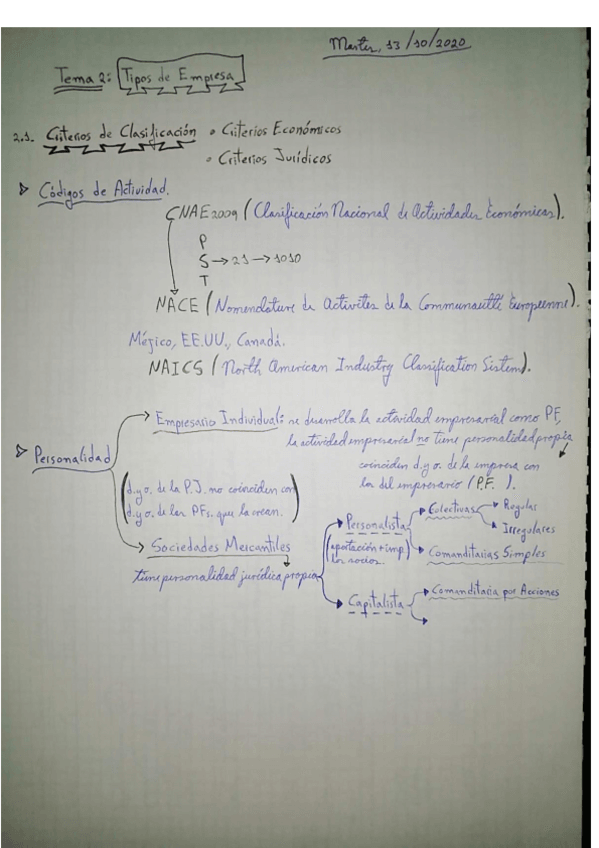 Martes, 13/10/2020
Tema 2: Tipos de Empresa
2.1. Criterios de Clasificación • Criterios Económicos
• Criterios Jurídicos
Códigos de Actividad.
CNAE2009 (Clasificación Nacional de Actividades Económicas).
P
S → 21 → 1010
T
NACE (Nomenclature de Activites de la Communautté Européenne).
Méjico, EE.UU., Canadá.
NAICS (North American Industry Classification Sistem).
Empresario Individual: se desarrolla la actividad empresarial como PF,
la actividad empresarial no tiene personalidad propia
Personalidad
coinciden d.y o. de la empresa con
los del empresario (P.F. ).
(d.y o. de la P.J. no coinciden con
d.y o. de las PFs. que la crean.)
Sociedades Mercantiles
tiene personalidad jurídica propia
Personalista
(aportación + imp.
los socios.)
Colectivas
Regular
Irregulares
Comanditarias Simples
Capitalista
Comanditaria por Acciones